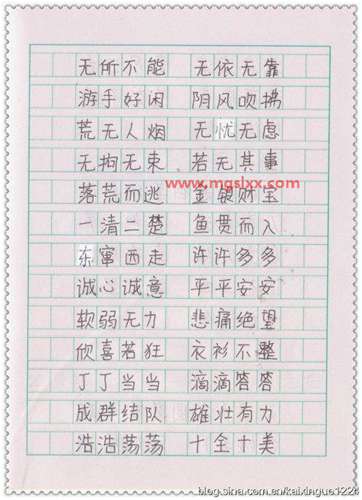 无所不能 无依无靠
游手好闲 阴风吹拂
荒无人烟 无忧无虑
无拘无束 若无其事
www.mgslxx.com
落荒而逃 金银财宝
一清二楚 鱼贯而入
东窜西走 许许多多
诚心诚意 平平安安
软弱无力 悲痛绝望
欣喜若狂 衣衫不整
丁丁当当 滴滴答答
成群结队 雄壮有力
浩浩荡荡 十全十美
blog.sina.com.cn/kaixinguo1224